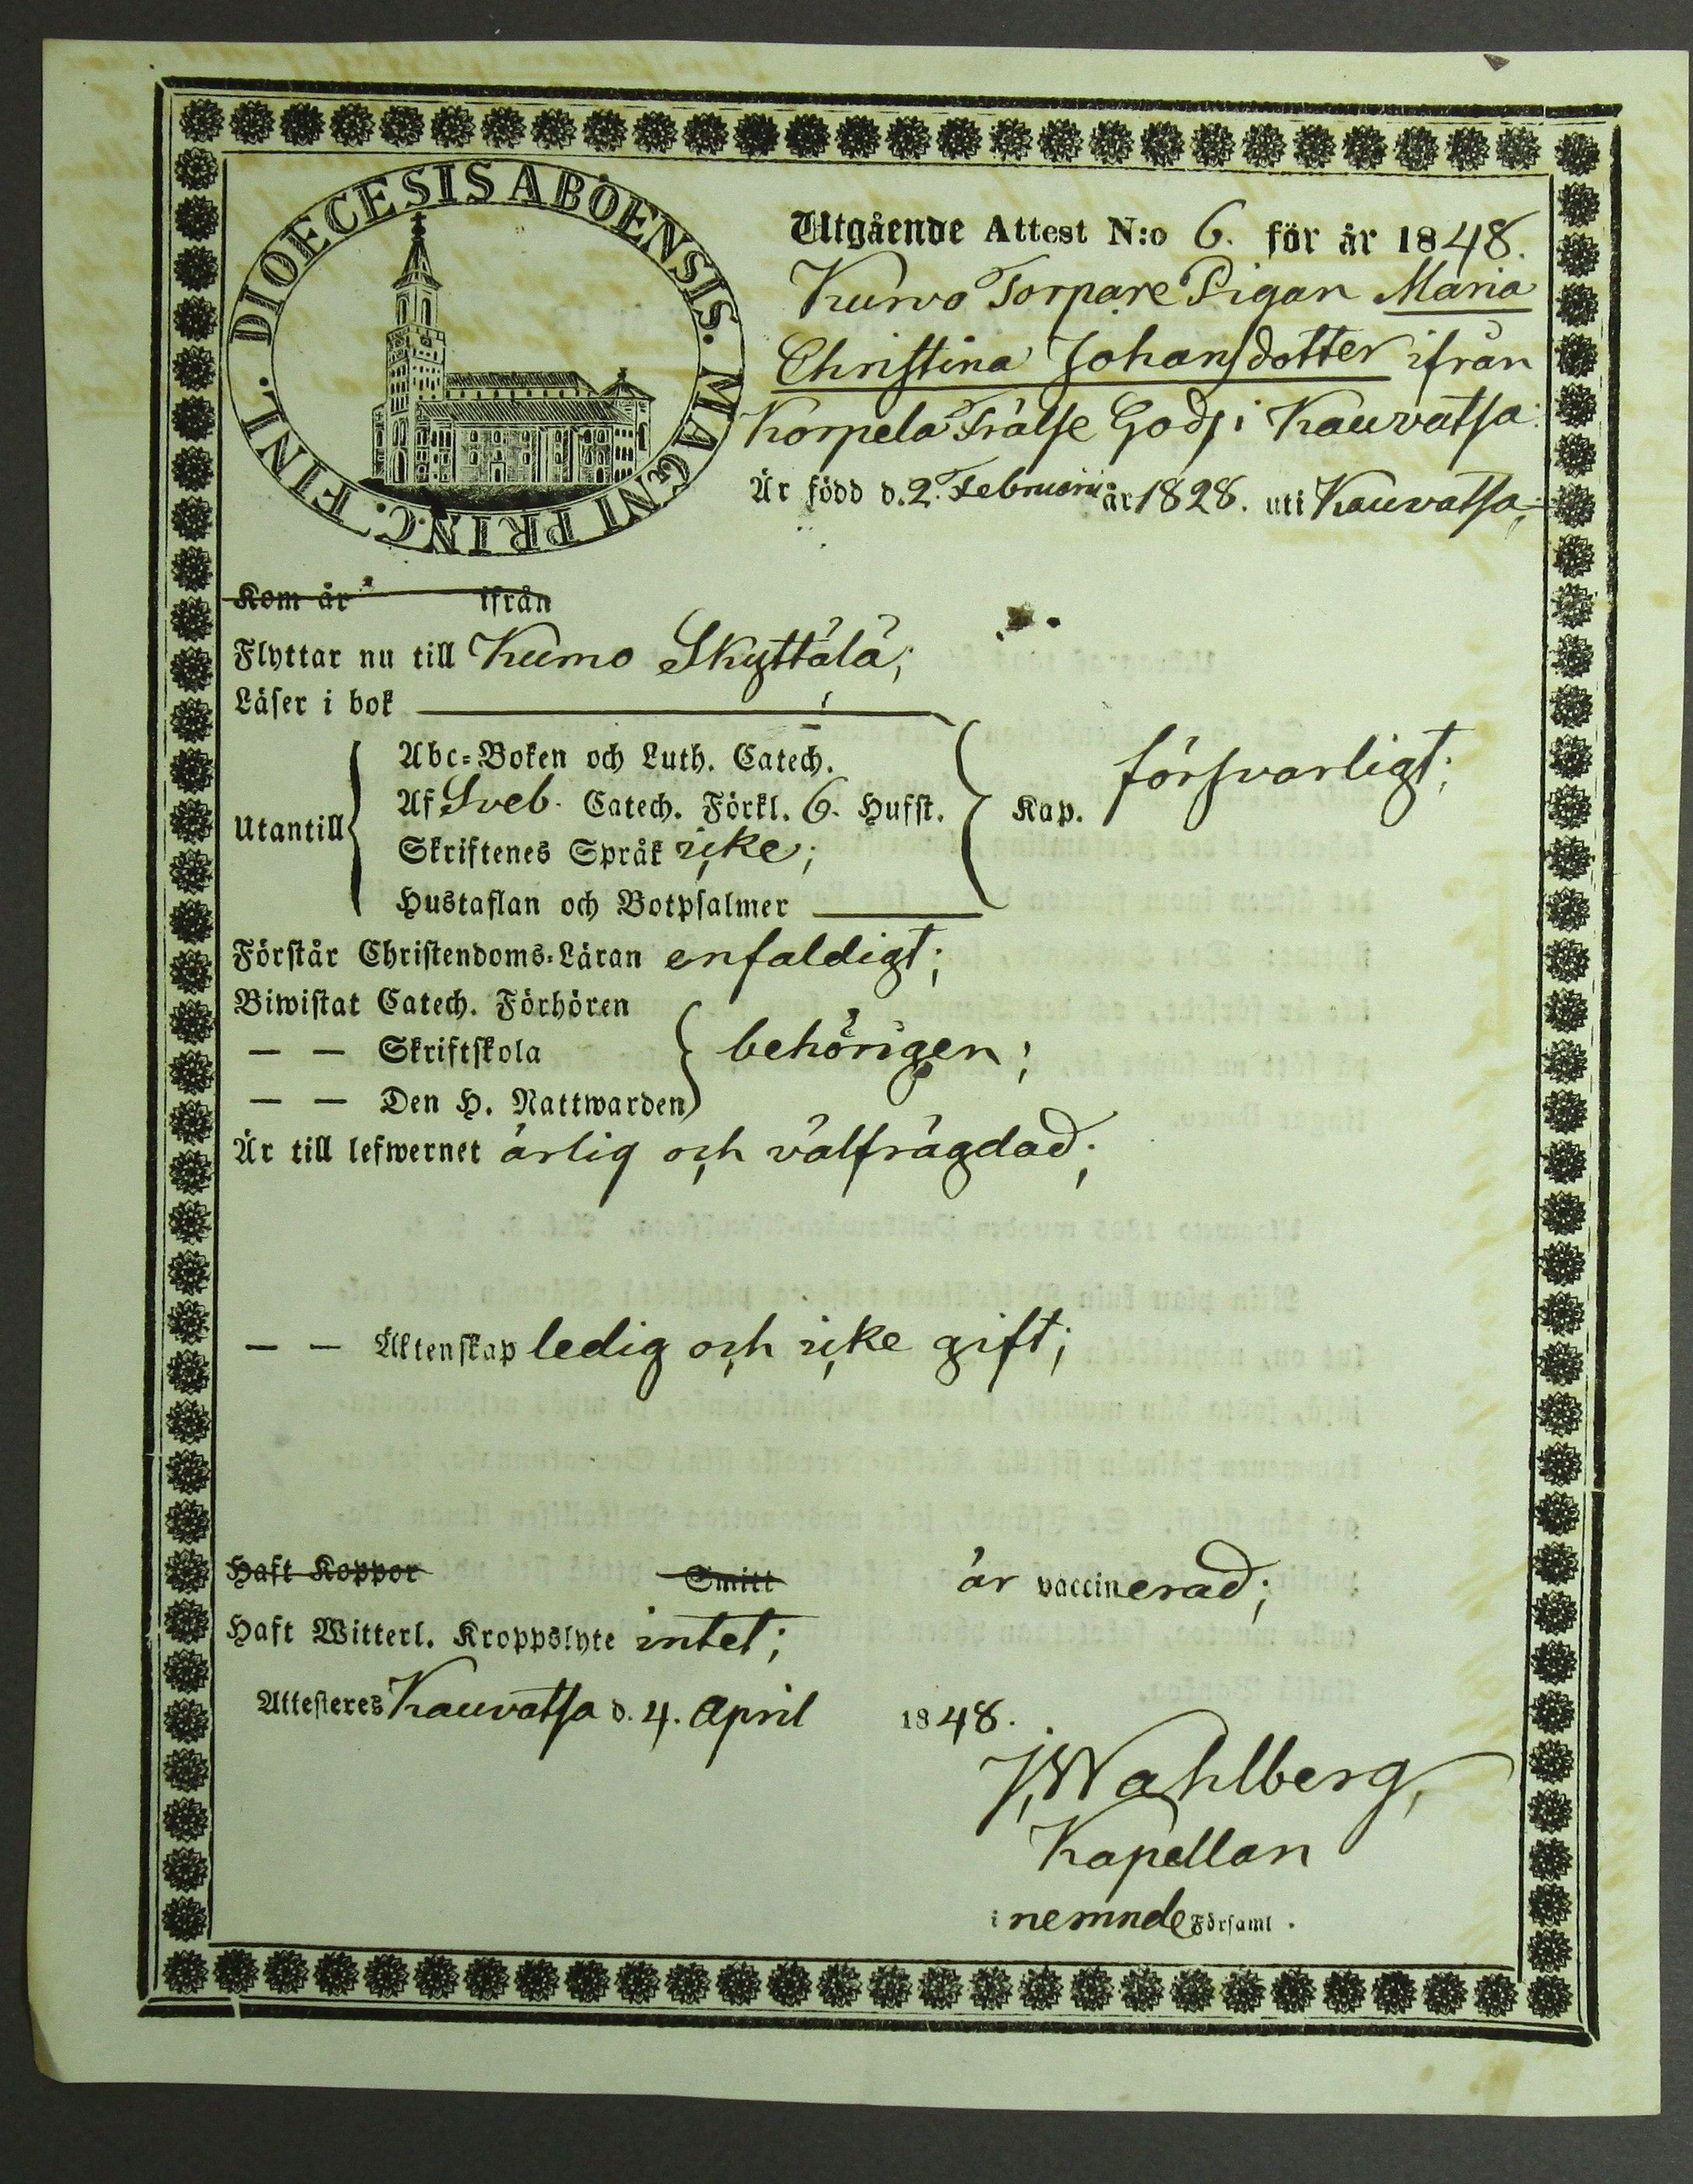 DIOECESIS ABOENSIS. MAGNI PRINC. FINL.
Utgående Attest N:o 6. för år 1848.
Torpare Pigan Maria
Christina Johansdotter ifrån
Korpela Frälse Gods i Kauvatsa.
Är född d. 2. Februarii år 1828. uti Kauvatsa;
Kom år ifrån
Flyttar nu till Kumo Skyttälä;
Läser i bok
Abc-Boken och Luth. Catech.
försvarligt;
Af Sveb. Catech. Förkl. 6. Hufst.
Utantill
Kap.
Skriftenes Språk icke;
Hustaflan och Botpsalmer
Förstår Christendoms-Läran enfaldigt;
Biwistat Catech. Förhören
— — Skriftskola
behörigen;
— — Den H. Nattwarden
Är till lefwernet ärlig och välfrägdad;
— — Äktenskap ledig och icke gift;
Haft Koppor Smitt är vaccinerad;
Haft Witterl. Kroppslyte intet;
Attesteres Kauvatsa d. 4. April 1848.
J. Wahlberg,
Kapellan
i nemnde Församl.